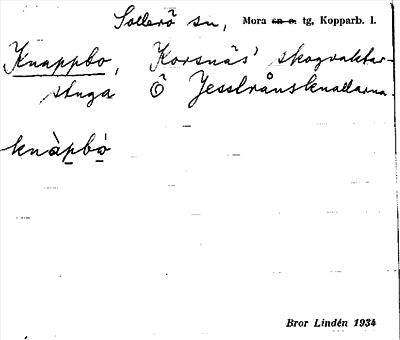 Sollerö sn, Mora sn o. tg, Kopparb. l.
Knappbo, Korsnäs' skogvaktar-
stuga Ö Jesslrånsknallarna.
knàpbò
Bror Lindén 1934